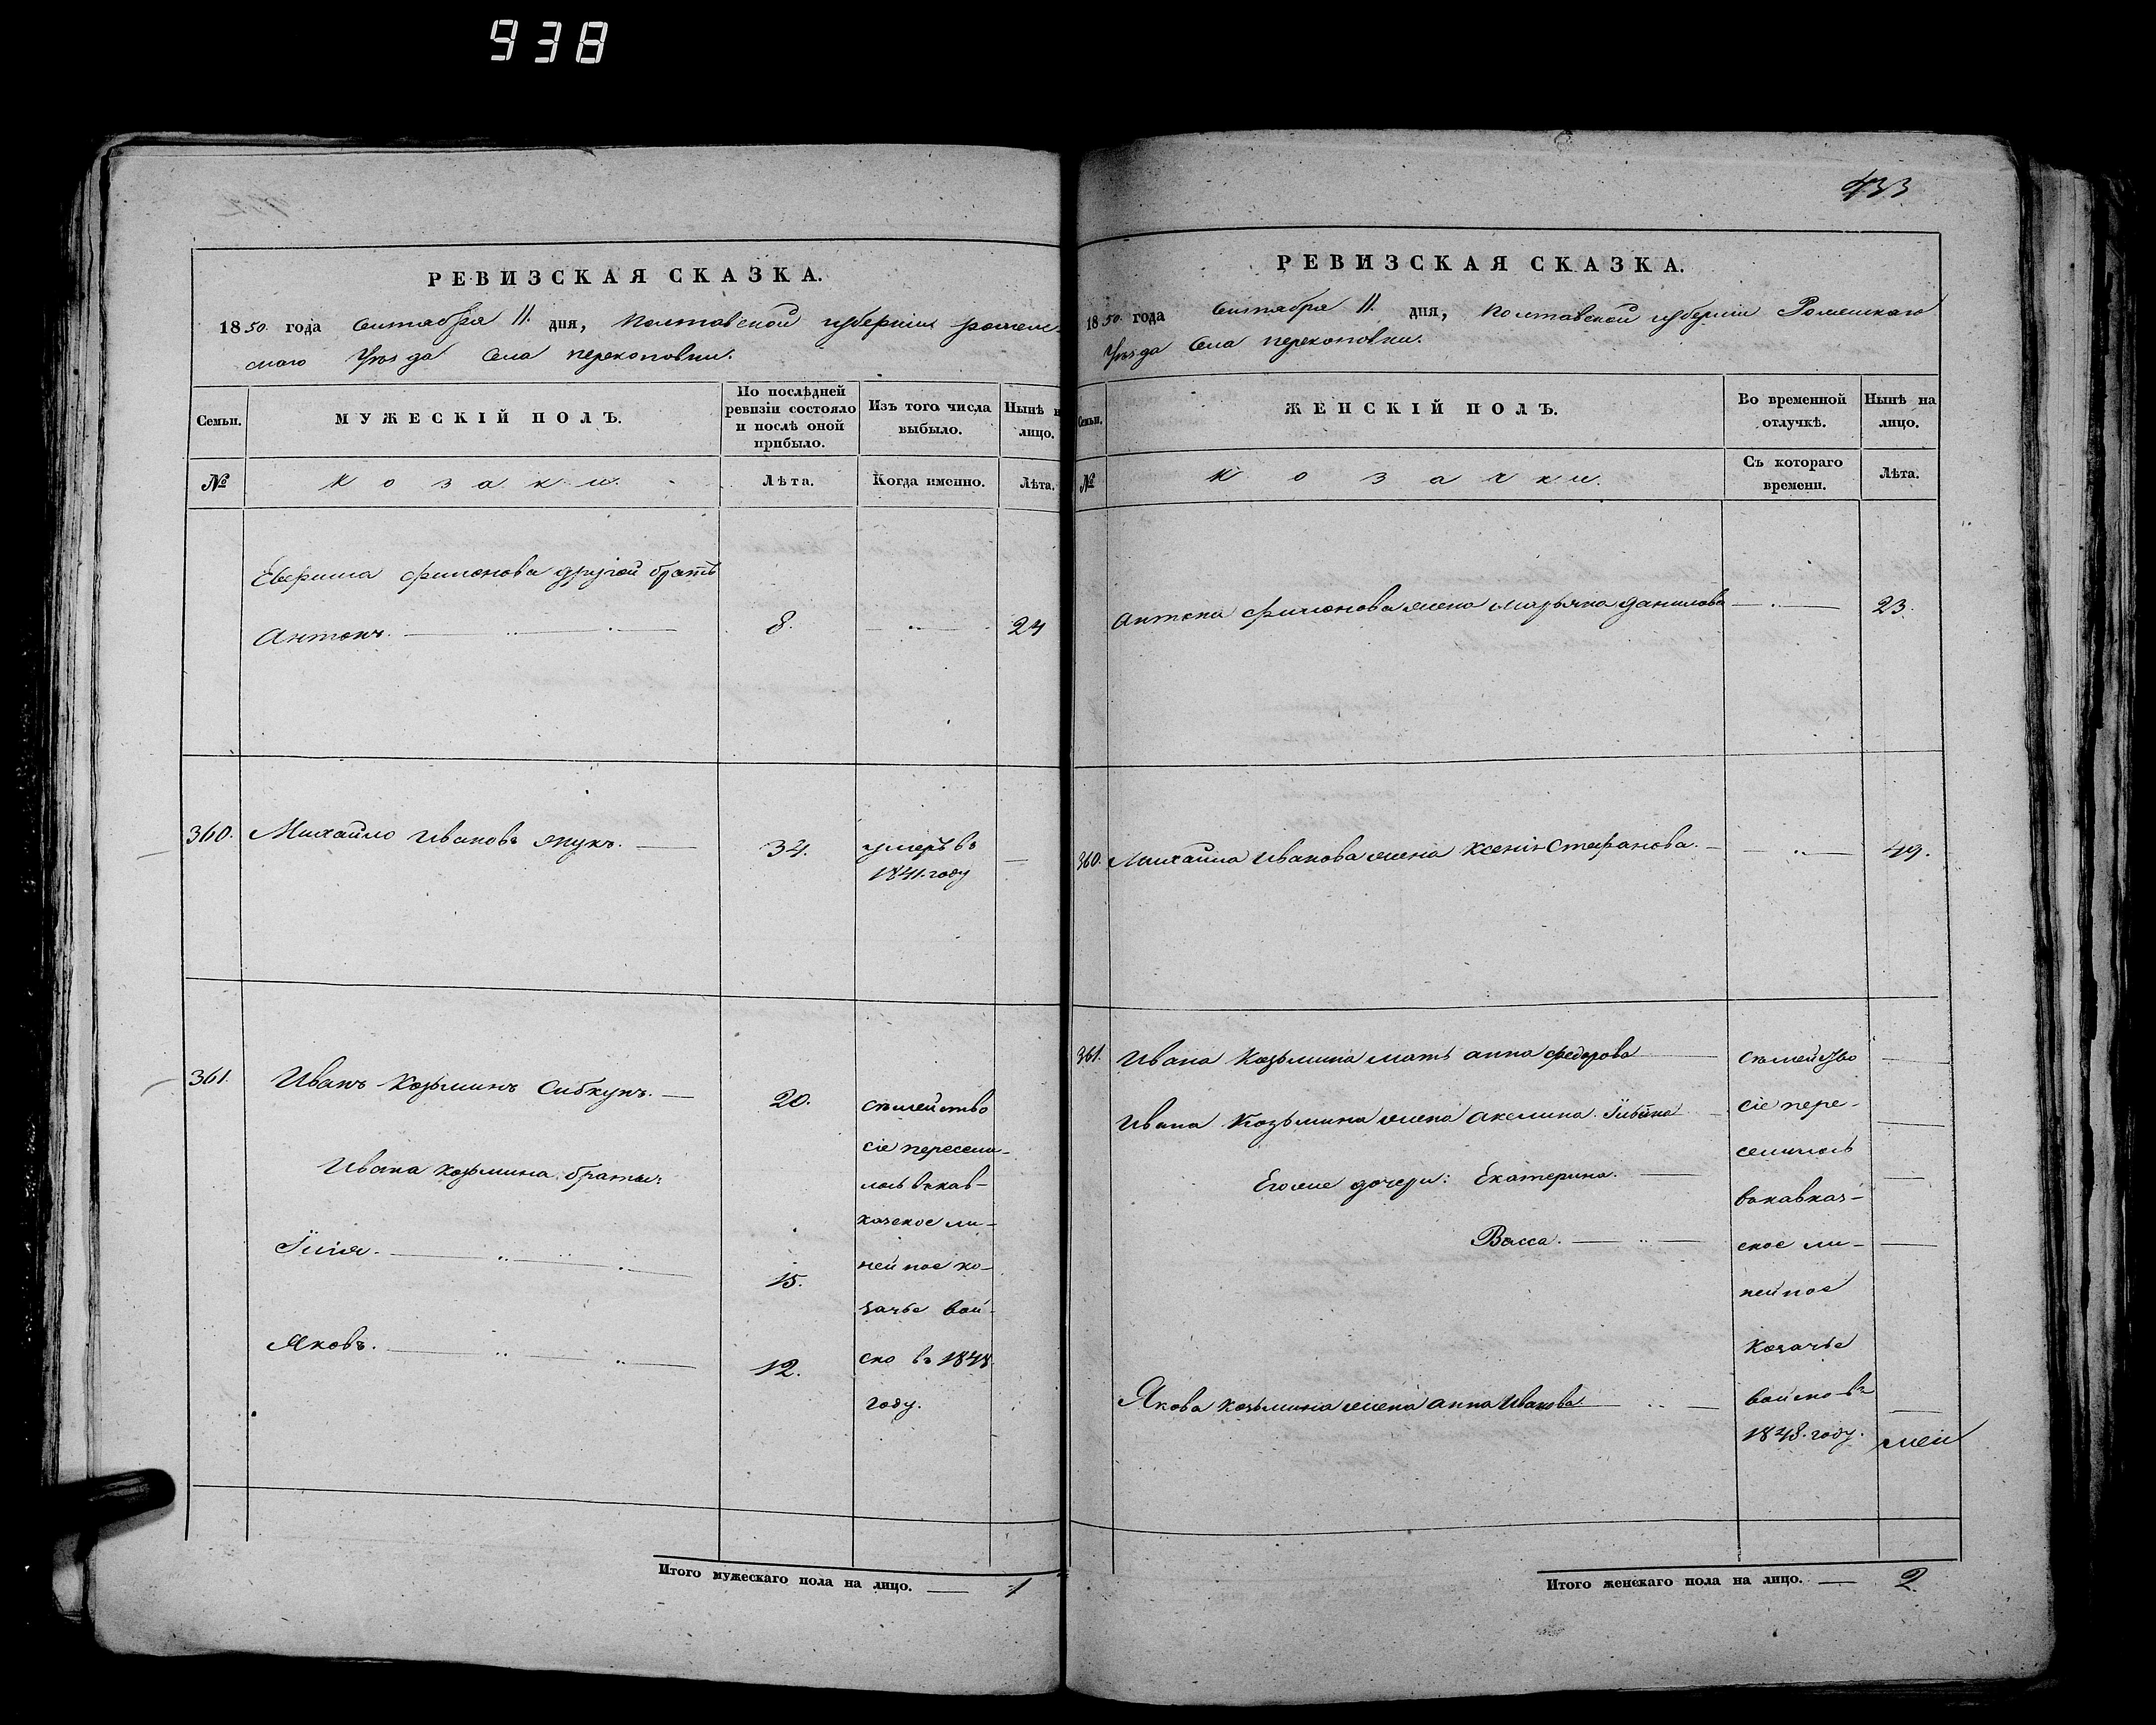 938
РЕВИЗСКАЯ СКАЗКА.
1850 года Сентября 11. дня, Полтавской губерніи ромен-
скаго Уѣзда Села перекоповки.
Семьи.
МУЖЕСКІЙ ПОЛЪ.
По послѣдней
ревизіи состояло
и послѣ оной
прибыло.
Изъ того числа
выбыло.
Нынѣ н
лицо.
№
козаки.
Лѣта.
Когда именно.
Лѣта.
филонова другой братъ
Антонъ.
8.
24
360.
Михайло Ивановъ
34.
умеръ въ
1841. году
361.
Иванъ Козьминъ
20.
семейство
сіе пересели-
лось в кав-
казское ли-
нейное ко-
зачье вой-
ско въ 1848
году.
Ивана козьмина братья:
Їлія.
15.
Яковъ.
12.
Итого мужескаго пола на лицо. 1
433
РЕВИЗСКАЯ СКАЗКА.
1850 года Сентября 11. дня, Полтавской губерніи Роменскаго
Уѣзда Села перекоповки.
Семьи.
ЖЕНСКІЙ ПОЛЪ.
Во временной
отлучкѣ.
Нынѣ на
лицо.
№
козачки.
Съ котораго
времени.
Лѣта.
Антона филонова жена марьяна данилова
23.
360.
Михайла Иванова жена Ксенія Стефанова.
49.
361.
Ивана Козьмина мать анна федорова
семейство
Ивана Козьмина жена акслина
сіе пере-
селилось
Егоже дочери: Екатерина.
вкавказ-
Васса.
ское ли-
нейное
козачье
Якова козьмина жена анна Иванова.
войско въ
1848. году.
Итого женскаго пола на лицо. 2.